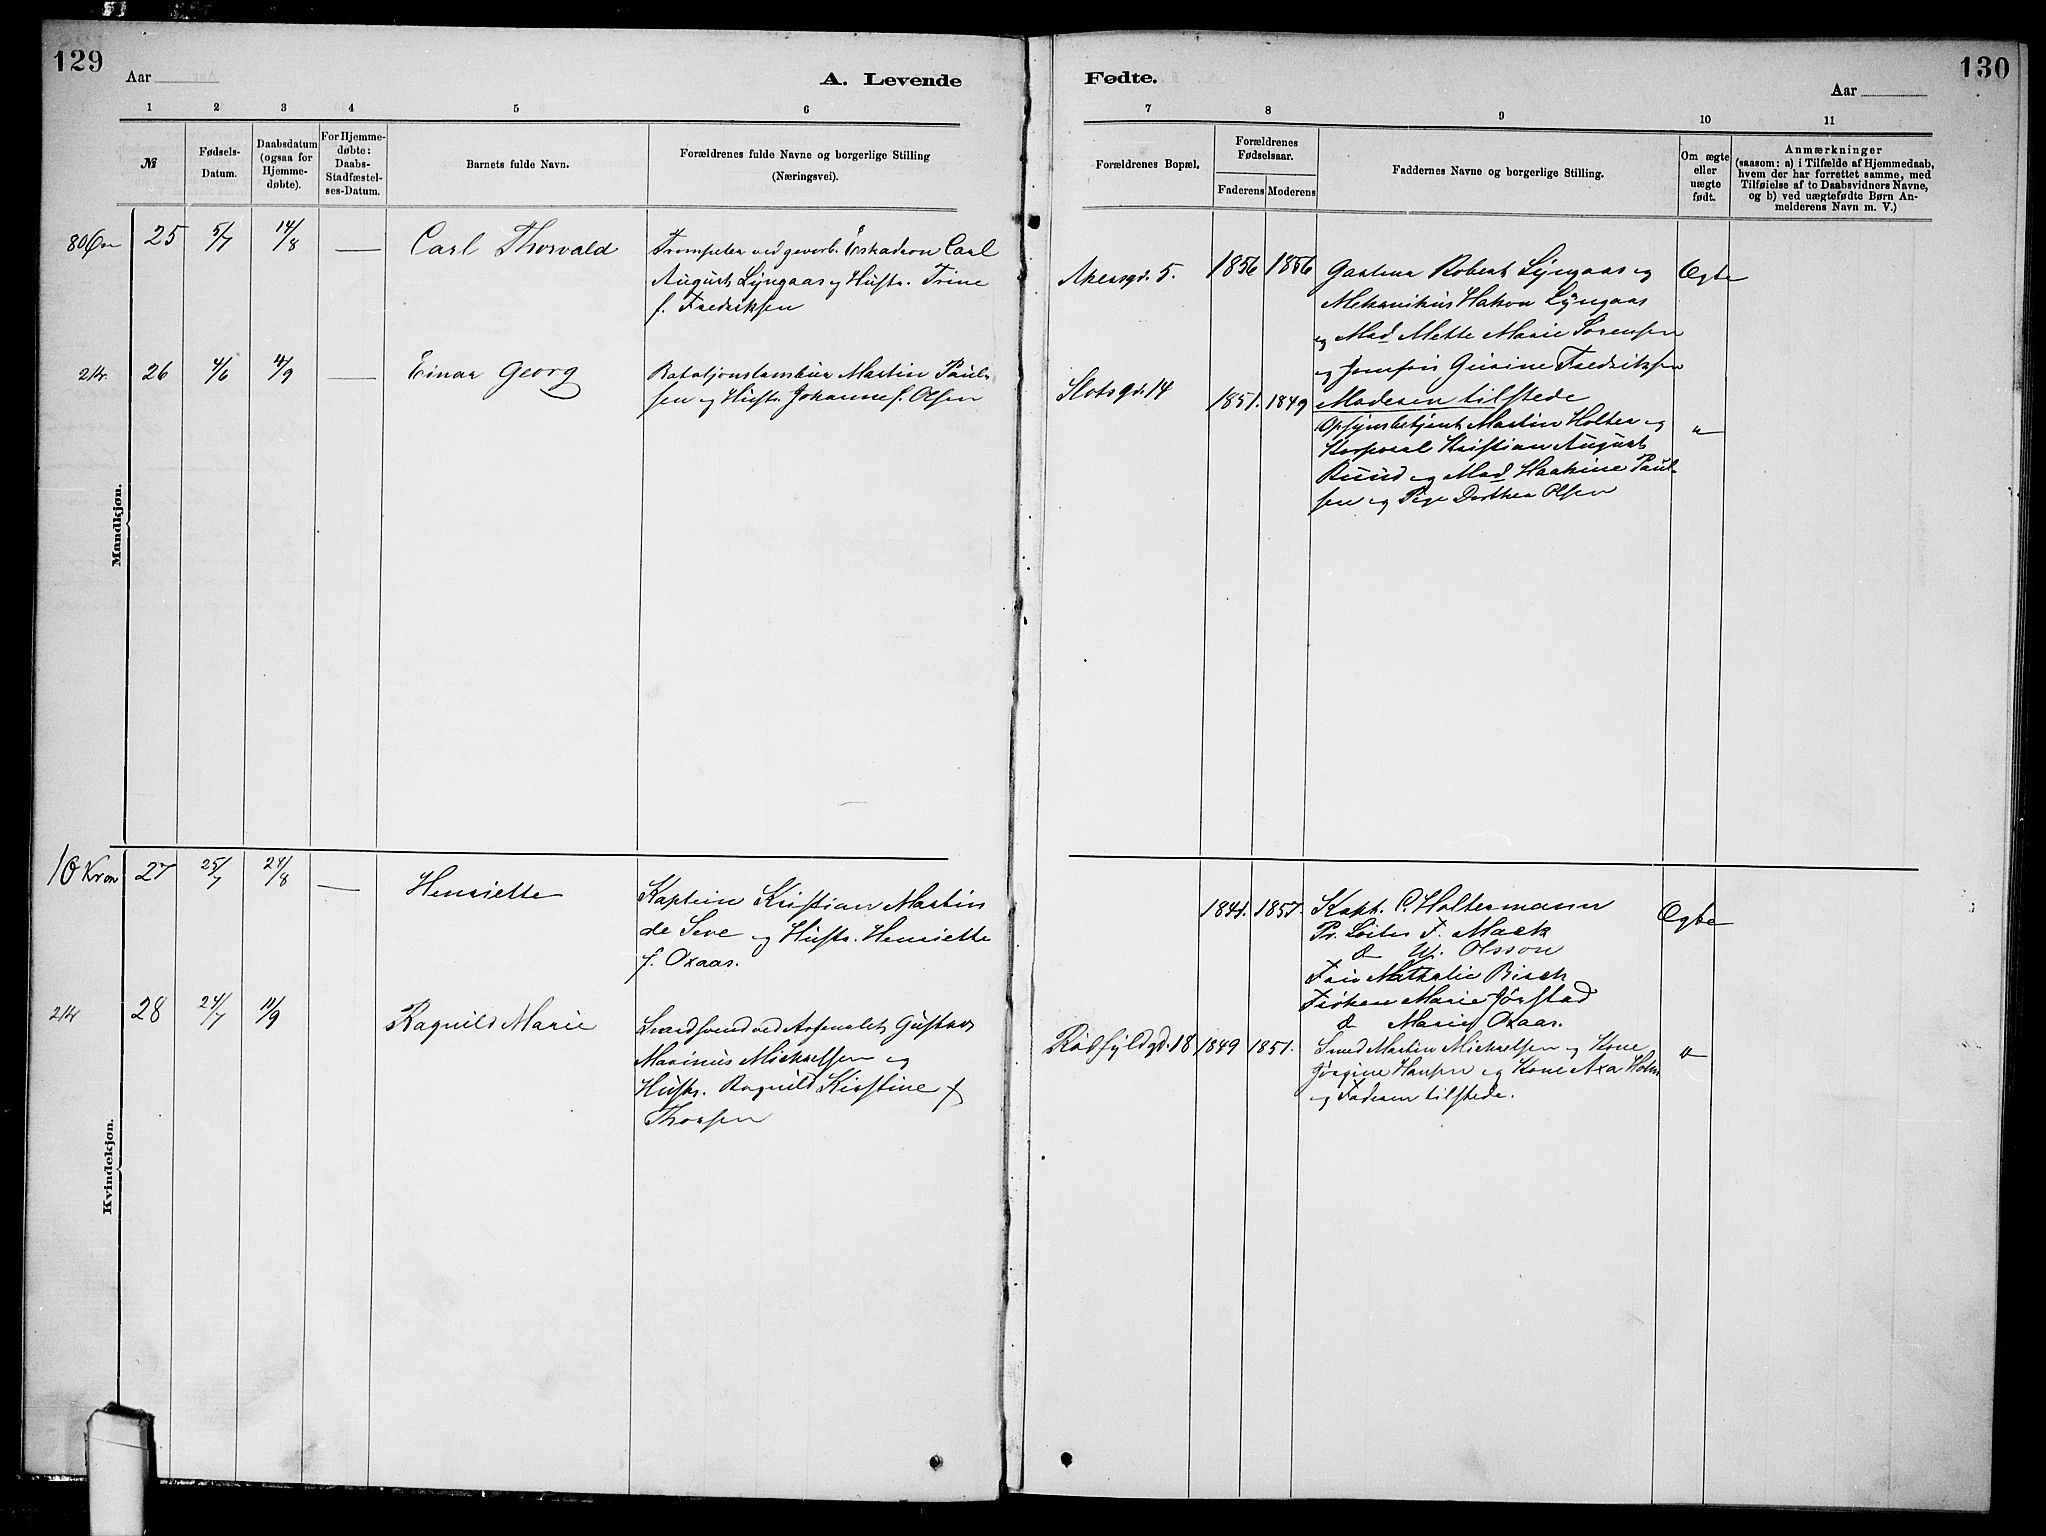 129
Aar
A. Levende
1 2 3 4 5 6
№
Fødsels-
Datum.
Daabsdatum
(ogsaa for
Hjemme-
døbte).
For Hjemme-
døbte:
Daabs-
Stadfæstel-
ses-Datum.
Barnets fulde Navn.
Forældrenes fulde Navne og borgerlige Stilling
(Næringsvei).
Mandkjøn.
80 Øre 25 5/7 14/8 — Carl Thorvald
Trompeter ved geverb. Eskadron Carl
August Lyngaas og Hustr. Trine
f. Fredriksen
2 Kr. 26 4/6 4/9 — Einar Georg
Bataljonstambur Martin Paul-
sen og Hustr. Johanne f. Olsen
Kvindekjøn.
10 Kron 27 25/7 24/8 — Henriette
Kaptein Kristian Martin
de Seve og Hustr. Henriette
f. Oxaas.
2 Kr 28 24/7 11/9 Ragnild Marie
Svendsvend ved Arsenalet Gustav
Marinus Mickaelsen og
Hustr. Ragnild Kirstine f
Thorsen
130
Fødte.
Aar
7 8 9 10 11
Forældrenes Bopæl.
Forældrenes
Fødselsaar.
Faderens Moderens
Faddernes Navne og borgerlige Stilling.
Om ægte
eller
uægte
født.
Anmærkninger
(saasom: a) i Tilfælde af Hjemmedaab,
hvem der har forrettet samme, med
Tilføielse af to Daabsvidners Navne,
og b) ved uægtefødte Børn An-
melderens Navn m. V.)
Akersgd. 5. 1856 1856
Gartner Robert Lyngaas og
Mekanikus Hakon Lyngaas
og Mad Mette Marie Sørensen
og Jomfru Gurine Fredriksen
Moderen tilstede
Ægte
Slotsgd. 14 1851. 1849
Opsynsbetjent Martin Holter og
Korporal Kristian August
Ruud og Mad Haakine Paul-
sen og Pige Dorthea Olsen
"
1841. 1857.
Kapt. C. Holtermann
Pr. Løitn F. Mack
do W. Olsson
Fru Nathalie Bisch
Frøken Marie Jørstad
do Marie Oxaas.
Ægte
Rødfyldgd. 18 1849 1851.
Smed Martin Mickaelsen og Kone
Jørgine Hansen og Kone Axa Holm
og Faderen tilstede.
"